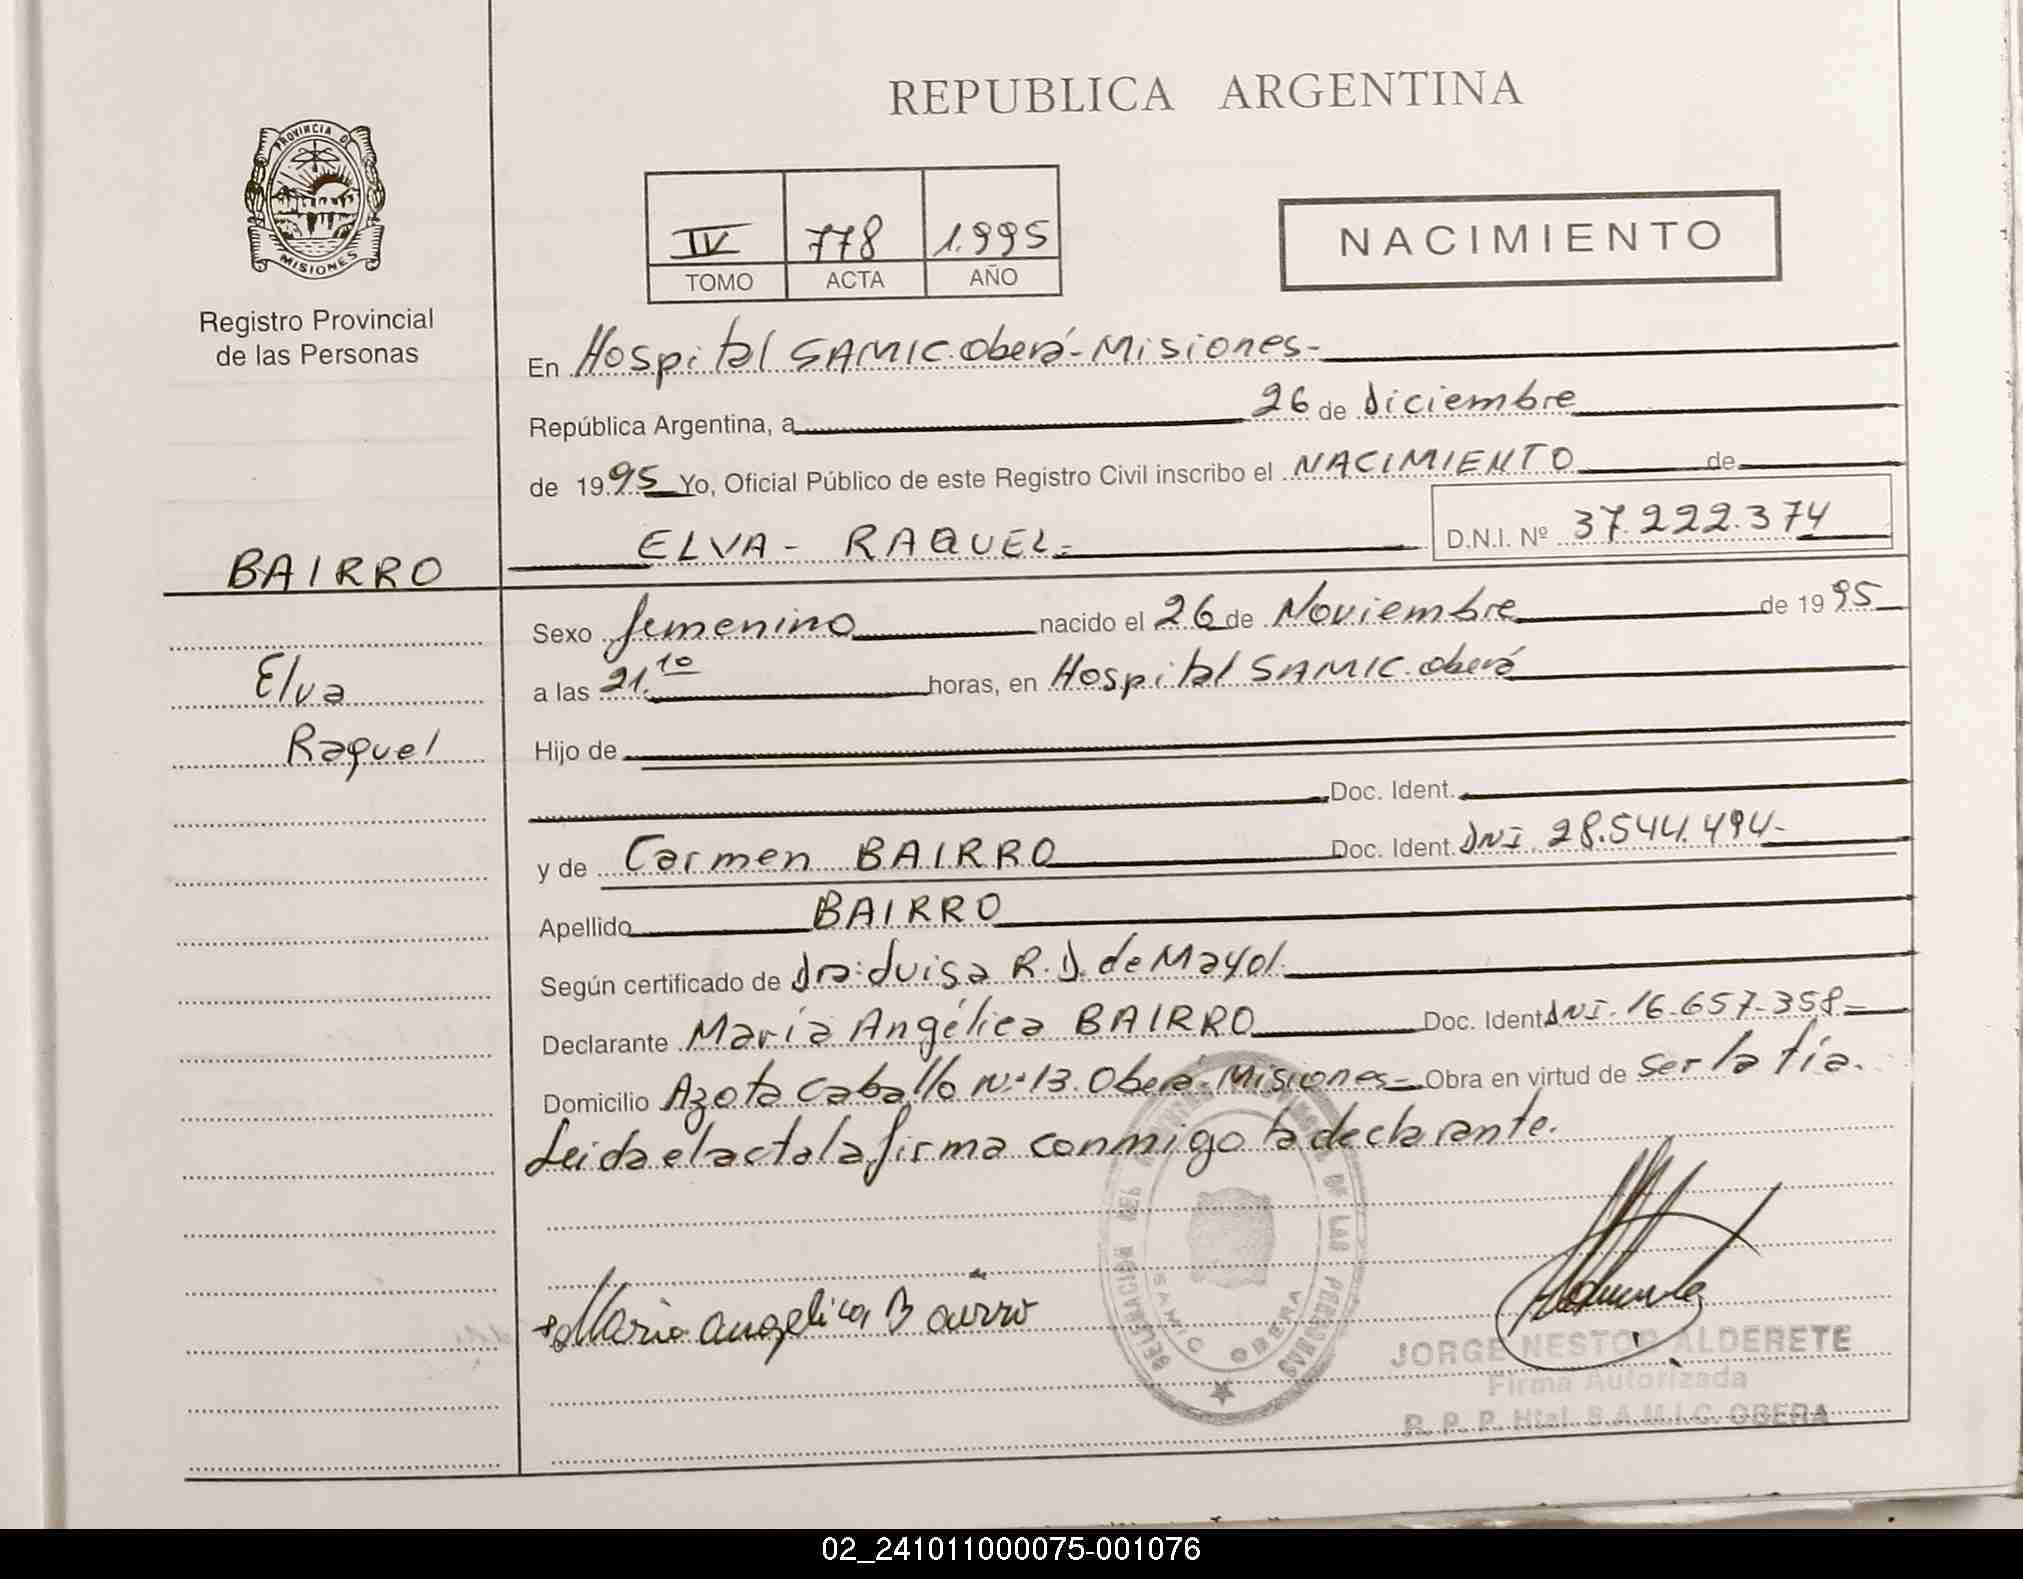 REPUBLICA ARGENTINA
PROVINCIA DE
MISIONES
Registro Provincial
de las Personas
IV 778 1.995
TOMO ACTA AÑO
NACIMIENTO
En Hospital SAMIC. Oberá - Misiones -
República Argentina, a 26 de diciembre
de 1995 Yo, Oficial Público de este Registro Civil inscribo el NACIMIENTO de
ELVA - RAQUEL - D.N.I. Nº 37.222.374
BAIRRO
Elva
Raquel
Sexo femenino nacido el 26 de Noviembre de 1995
a las 21.10 horas, en Hospital SAMIC. Oberá
Hijo de
Doc. Ident.
y de Carmen BAIRRO Doc. Ident. DNI. 28.544.494-
Apellido BAIRRO
Según certificado de Dra: Luisa R. D. de Mayol.
Declarante María Angélica BAIRRO Doc. Ident. DNI. 16.657.358-
Domicilio Azota Caballo Nº 13. Oberá - Misiones - Obra en virtud de ser la tía.
Leida el acta la firma conmigo la declarante.
Maria angelica Bairro
DELEGACION DEL REGISTRO PROVINCIAL DE LAS PERSONAS
SAMIC OBERA
JORGE NESTOR ALDERETE
Firma Autorizada
R. P. P. Htal. S.A.M.I.C. OBERA
02_241011000075-001076